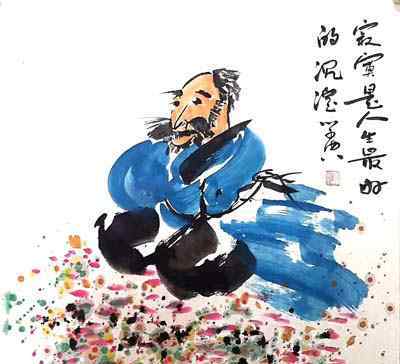 寂寞是人生最好
的沉淀